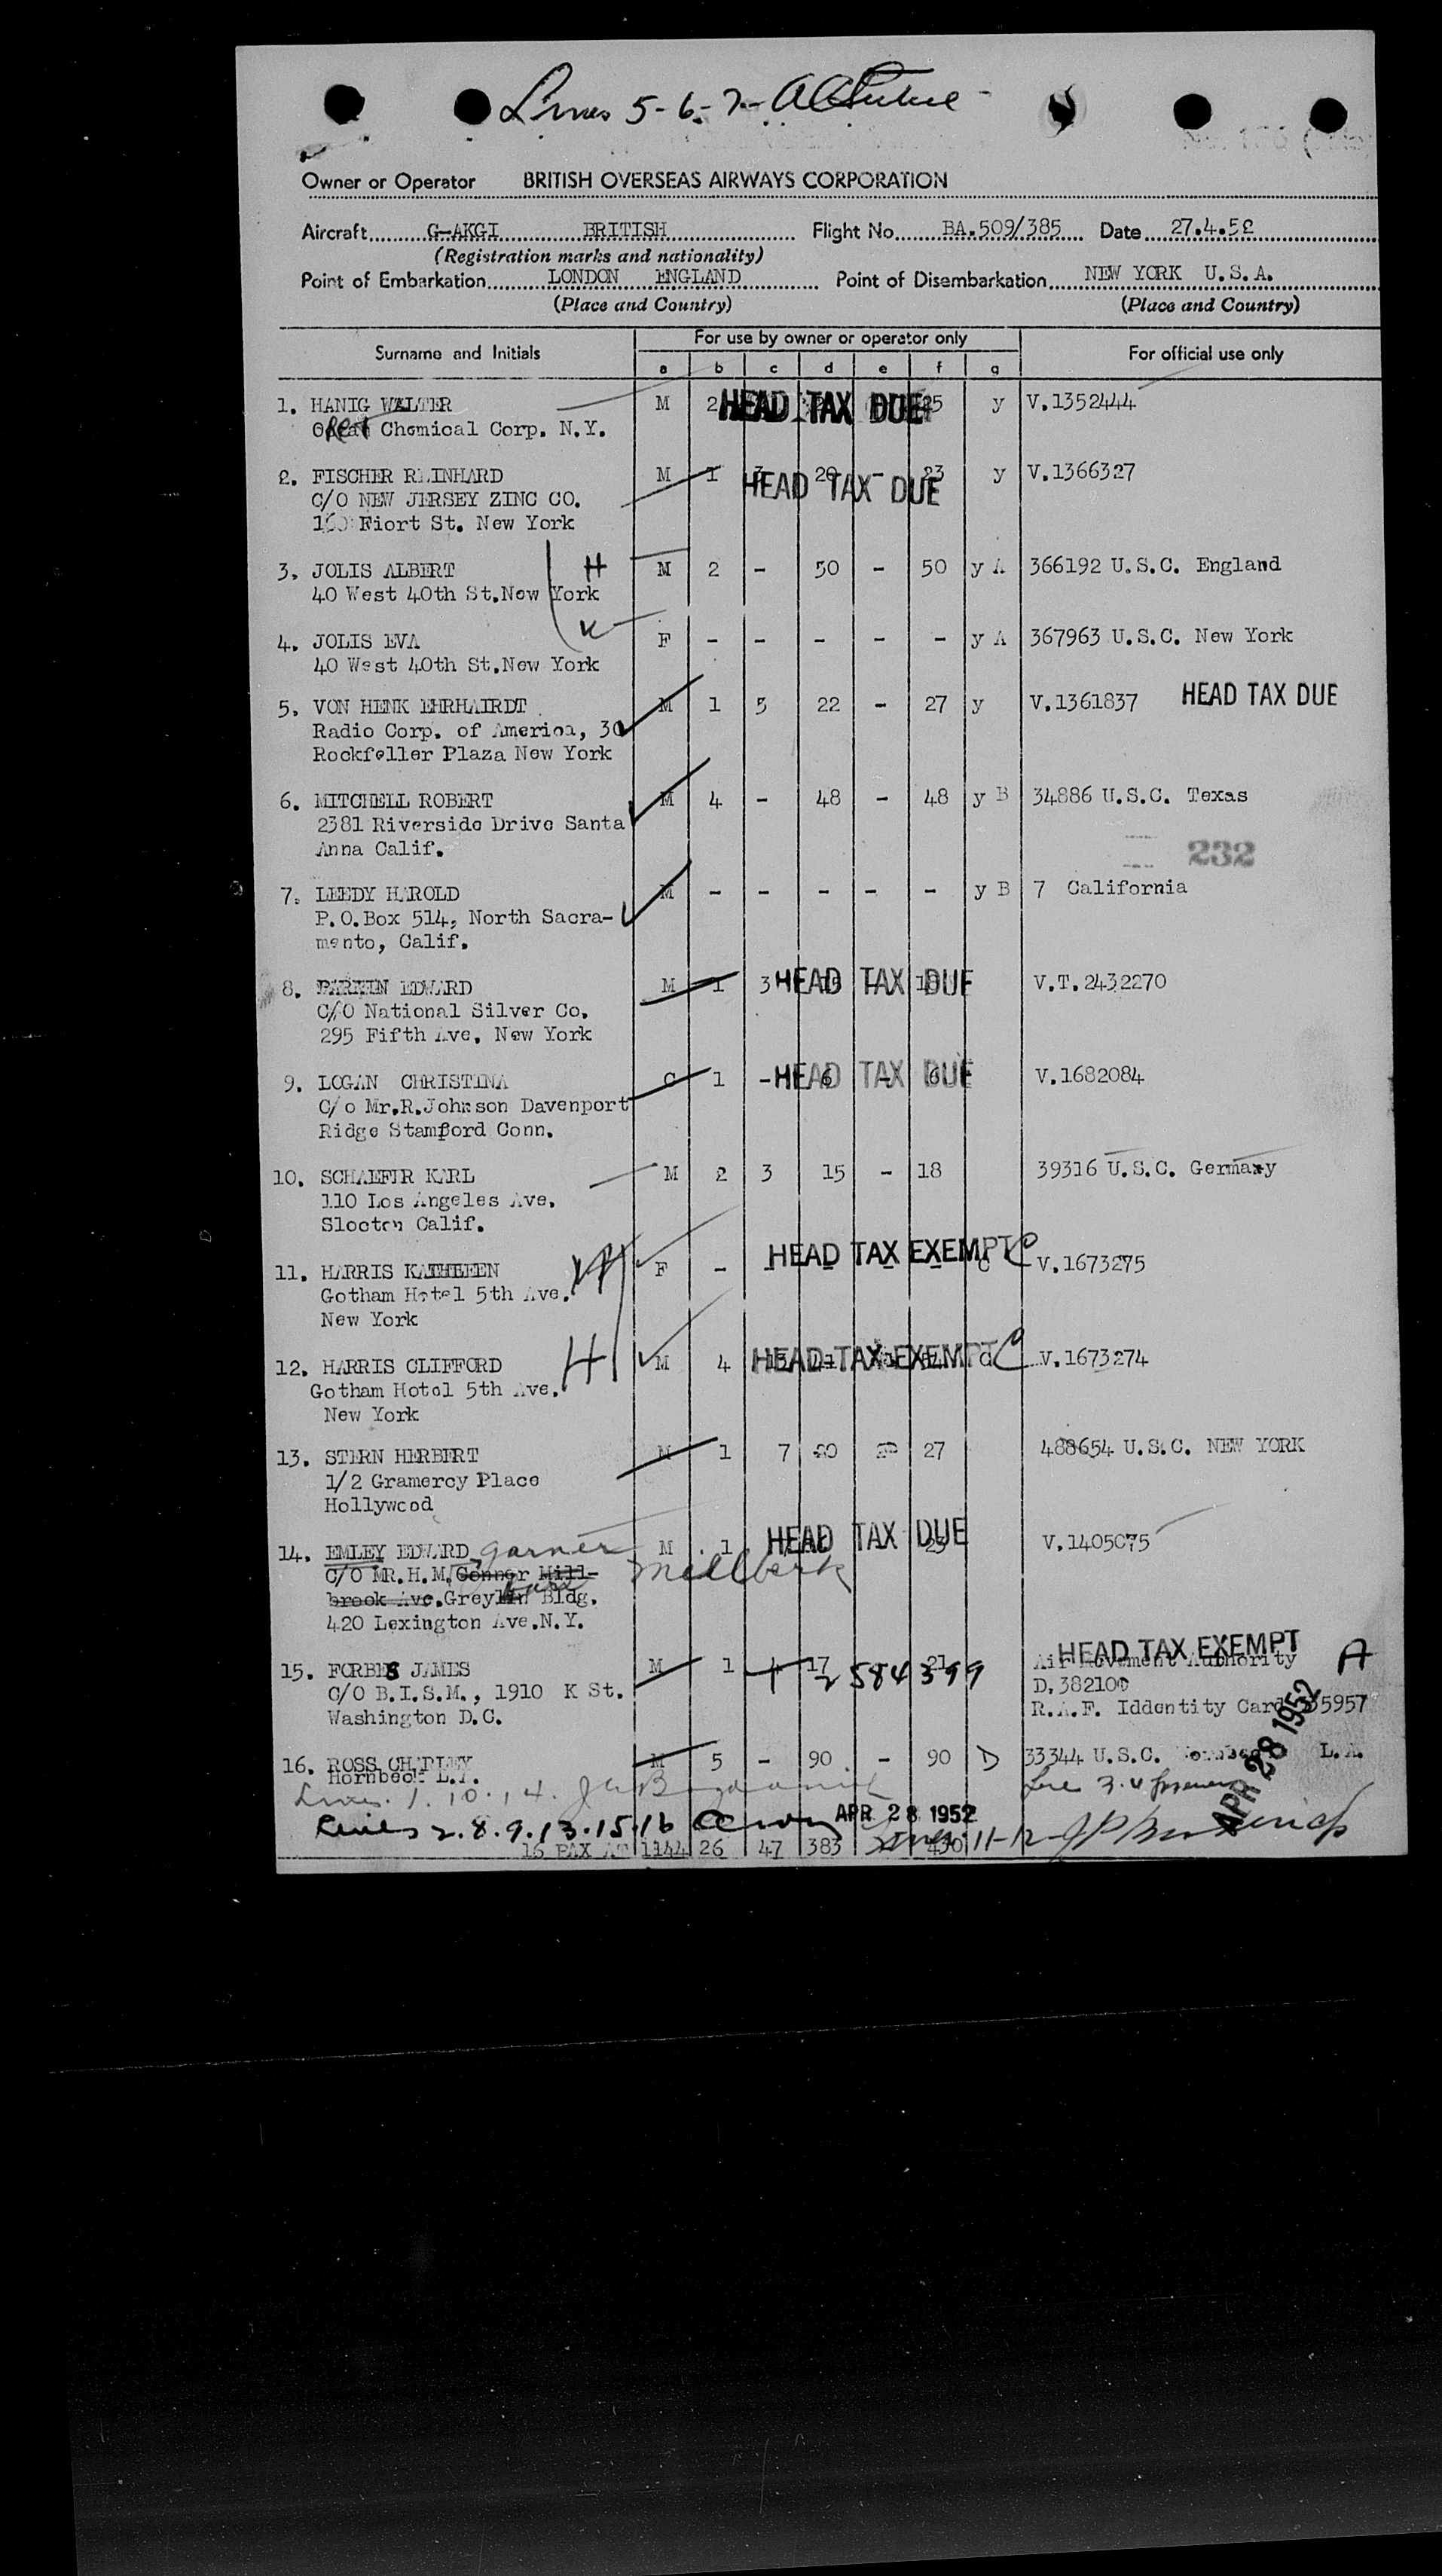 Lines 5-6-7-
Owner or Operator BRITISH OVERSEAS AIRWAYS CORPORATION
Aircraft G-AKGI BRITISH Flight No. BA.509/385 Date 27.4.52
(Registration marks and nationality)
Point of Embarkation LONDON ENGLAND Point of Disembarkation NEW YORK U.S.A.
(Place and Country) (Place and Country)
Surname and Initials For use by owner or operator only For official use only
a b c d e f g
1. HANIG WALTER M 2 HEAD TAX DUE 25 y V.1352444
Chemical Corp. N.Y.
2. FISCHER REINHARD M 1 3 20 - 23 y V.1366327
HEAD TAX DUE
C/O NEW JERSEY ZINC CO.
Fiort St. New York
3. JOLIS ALBERT H M 2 - 50 - 50 y A 366192 U.S.C. England
40 West 40th St.New York
4. JOLIS EVA F - - - - - y A 367963 U.S.C. New York
40 West 40th St.New York
5. VON HENK EHRHAIRDT M 1 5 22 - 27 y V.1361837 HEAD TAX DUE
Radio Corp. of America, 30
Rockfeller Plaza New York
6. MITCHELL ROBERT M 4 - 48 - 48 y B 34886 U.S.C. Texas
2381 Riverside Drive Santa
Anna Calif.
232
7. LEEDY HAROLD M - - - - - y B 7 California
P.O.Box 514, North Sacra-
mento, Calif.
8. EDWARD M 1 3 HEAD TAX DUE V.T.2432270
C/O National Silver Co.
295 Fifth Ave. New York
9. LOGAN CHRISTINA C 1 - 6 - 6 V.1682084
HEAD TAX DUE
C/o Mr.R.Johnson Davenport
Ridge Stamford Conn.
10. SCHAEFER KARL M 2 3 15 - 18 39316 U.S.C. Germany
110 Los Angeles Ave.
Slooton Calif.
HEAD TAX EXEMPT C
11. HARRIS KATHLEEN W F - - - - - V.1673275
Gotham Hotel 5th Ave.
New York
12. HARRIS CLIFFORD H M 4 HEAD TAX EXEMPT C V.1673274
Gotham Hotel 5th Ave.
New York
13. STERN HERBERT M 1 7 20 27 488654 U.S.C. NEW YORK
1/2 Gramercy Place
Hollywood
14. EMLEY EDWARD Garner M 1 HEAD TAX DUE V.1405075
C/O MR.H.M. Connor Mill- Millbank
brook Ave. Bldg.
420 Lexington Ave.N.Y.
HEAD TAX EXEMPT A
15. FORBES JAMES M 1 4 17 21 Air Movement Authority
2584399
C/O B.I.S.M., 1910 K St. D.382100
Washington D.C. R.A.F. Iddentity Card 35957
16. ROSS CHARLEY M 5 - 90 - 90 D 33344 U.S.C. L.A.
Hornbeck L.A.
Lines 1. 10. 14.
Lines 2.8.9.13.15.16 APR 28 1952 Lines 11-12
APR 28 1952
16 PAX AT 1144 26 47 383 430